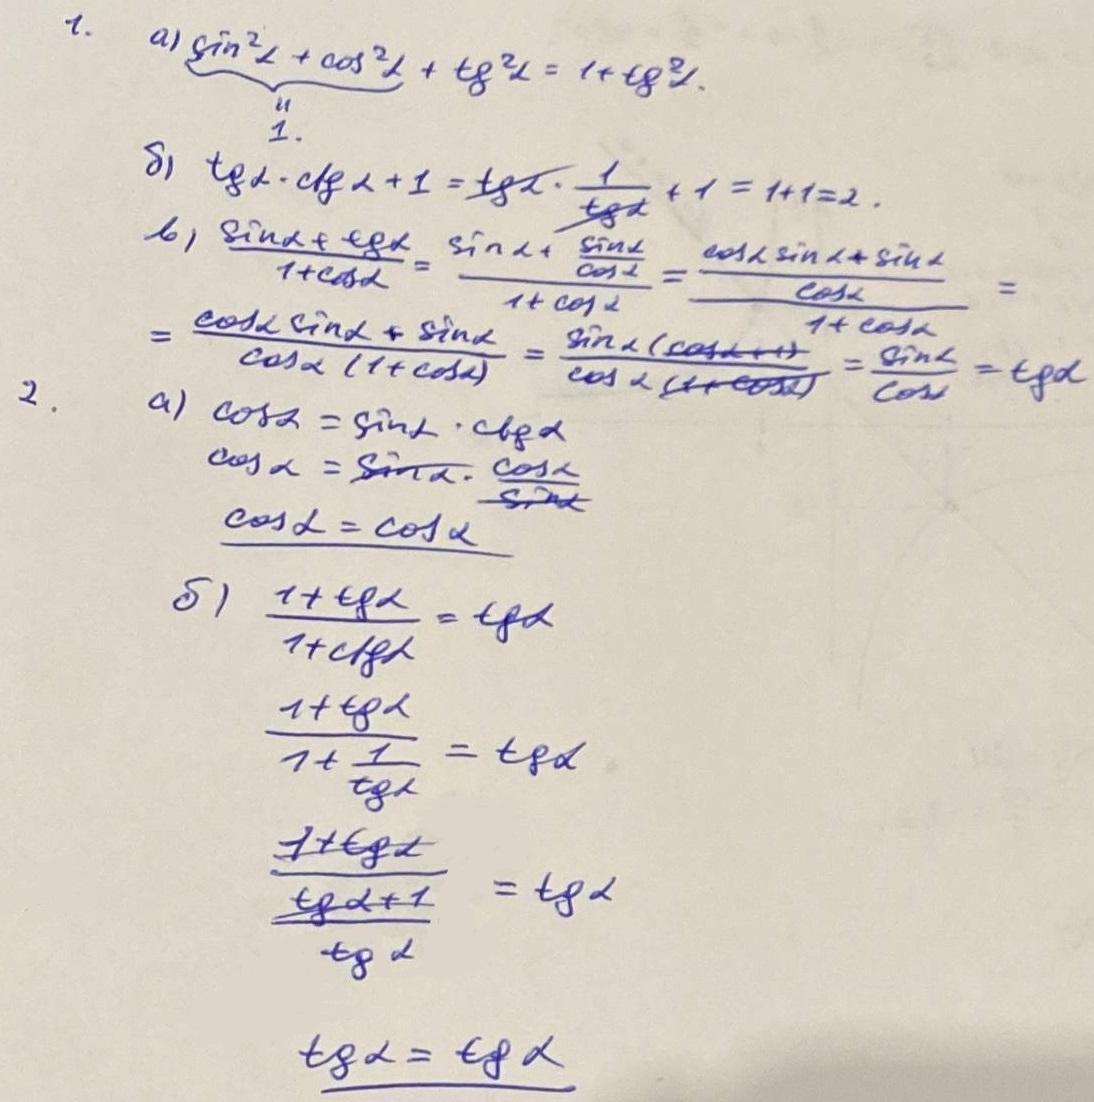 1. а) sin²α + cos²α + tg²α = 1 + tg²α.
"
1.
б) tgα · ctgα + 1 = tgα · 1/tgα + 1 = 1+1=2.
в) (sinα + tgα)/(1+cosα) = (sinα + sinα/cosα)/(1+cosα) = ((cosα sinα + sinα)/cosα)/(1+cosα) =
= (cosα sinα + sinα)/(cosα (1+cosα)) = (sinα (cosα+1))/(cosα (1+cosα)) = sinα/cosα = tgα
2. а) cosα = sinα · ctgα
cosα = sinα · cosα/sinα
cosα = cosα
б) (1+tgα)/(1+ctgα) = tgα
(1+tgα)/(1+1/tgα) = tgα
(1+tgα)/((tgα+1)/tgα) = tgα
tgα = tgα